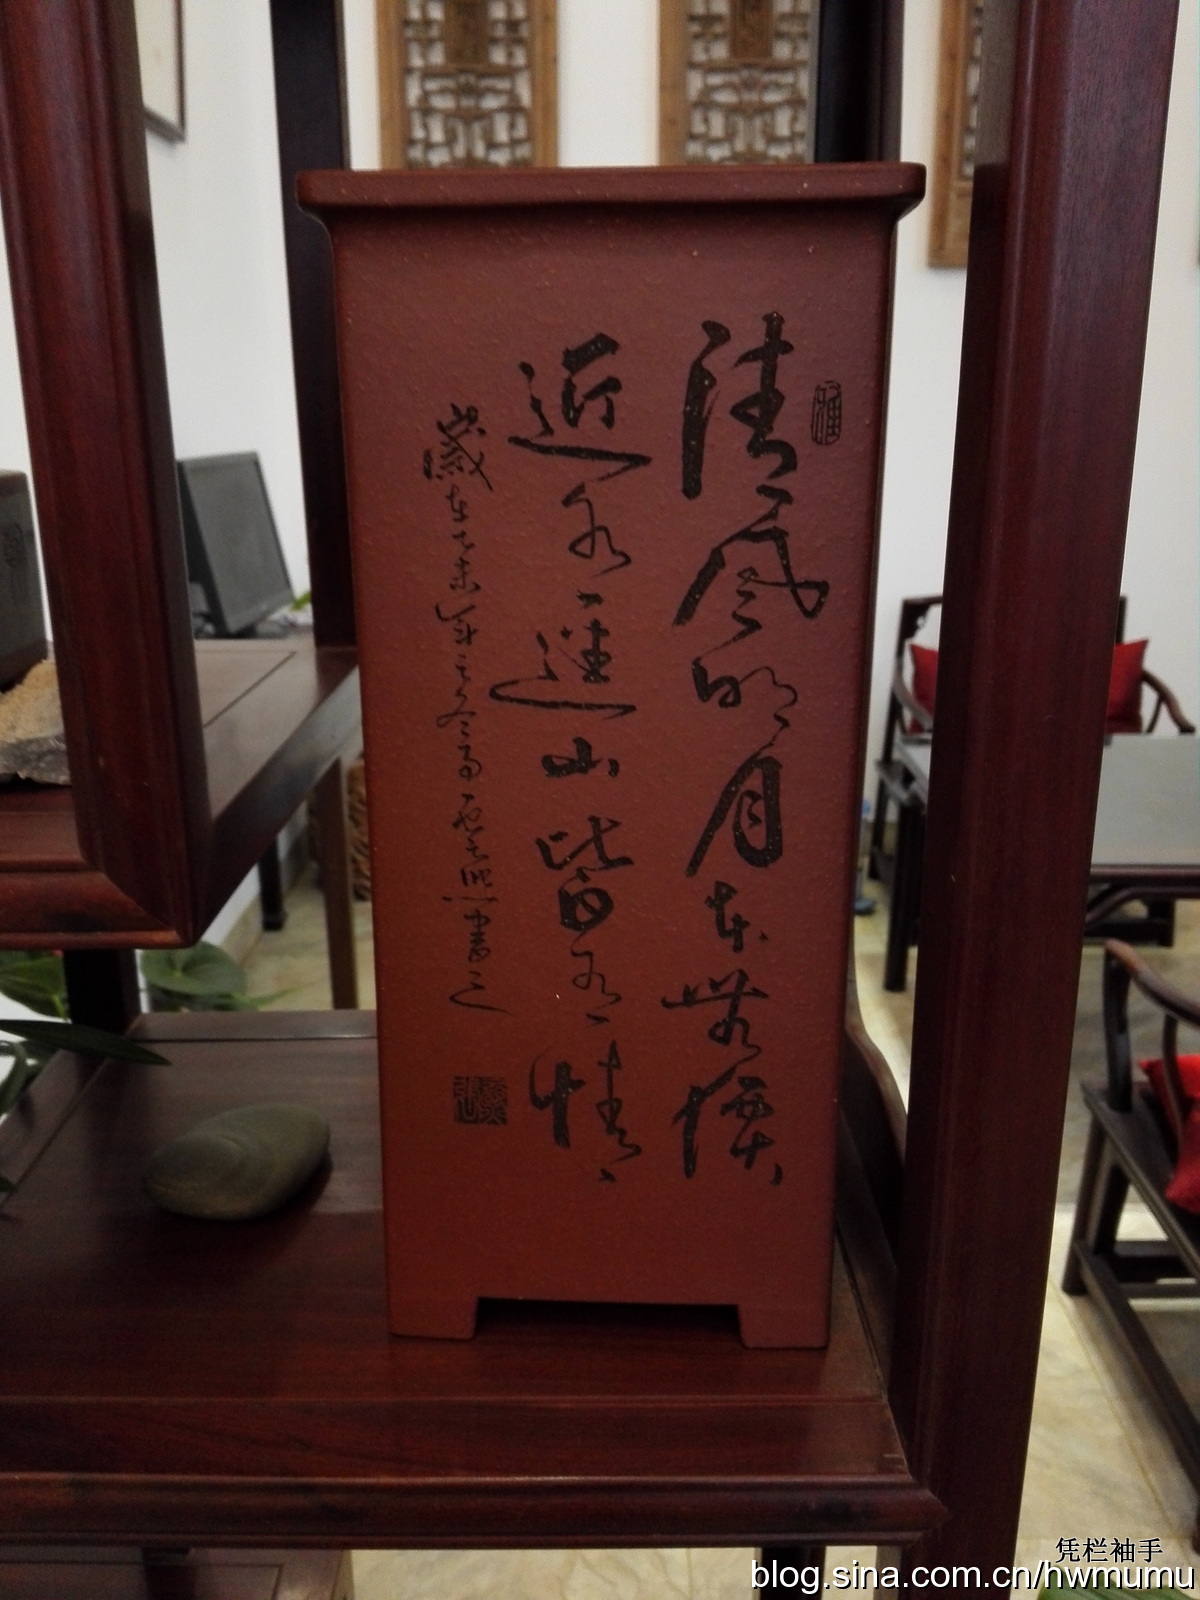 清風明月本無價
近水遠山皆有情
歲在乙未年之冬
書
凭栏袖手
blog.sina.com.cn/hwmumu